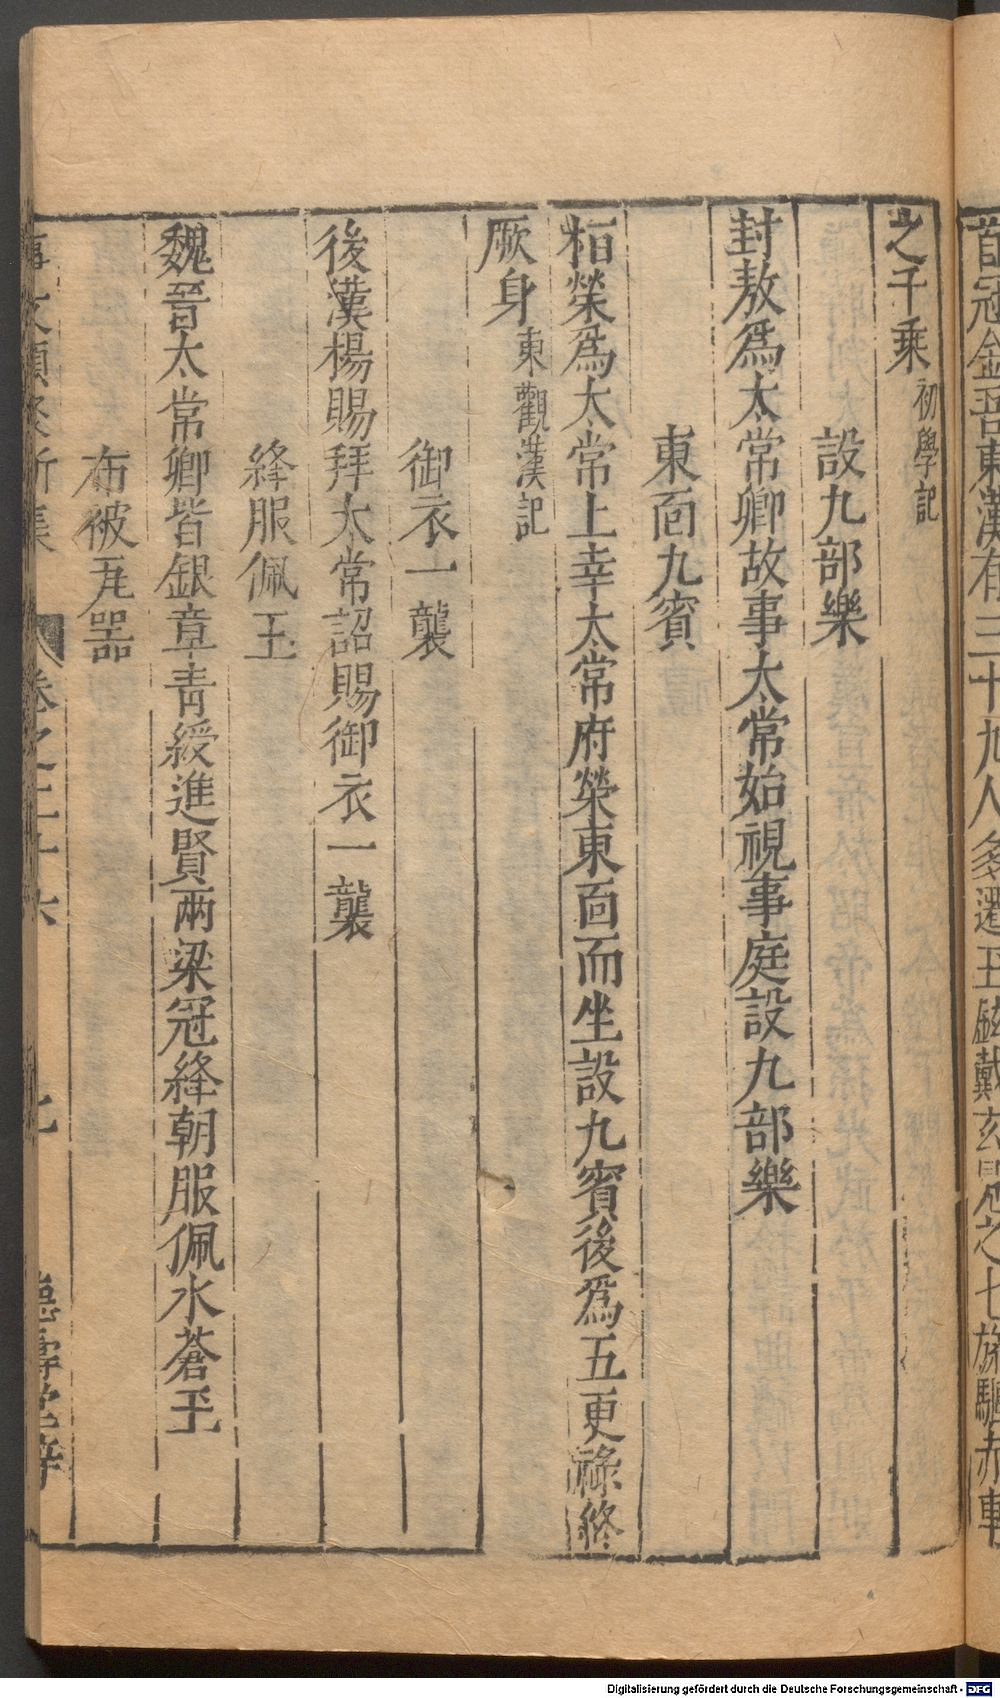 首冠金吾東漢有三十九人多還玉鉞戴玄冕之七旒驅赤車
之千乘初學記
設九部樂
封敖爲太常卿故事太常始視事庭設九部樂
東靣九賓
桓榮爲太常上幸太常府榮東靣而坐設九賓後爲五更祿終
厥身東觀漢記
御衣一襲
後漢楊賜拜太常詔賜御衣一襲
絳服佩玉
魏晉太常卿皆銀章青綬進賢兩梁冠絳朝服佩水蒼玉
布被瓦器
事文類聚新集 卷之二十六 七 德壽堂梓
Digitalisierung gefördert durch die Deutsche Forschungsgemeinschaft - DFG